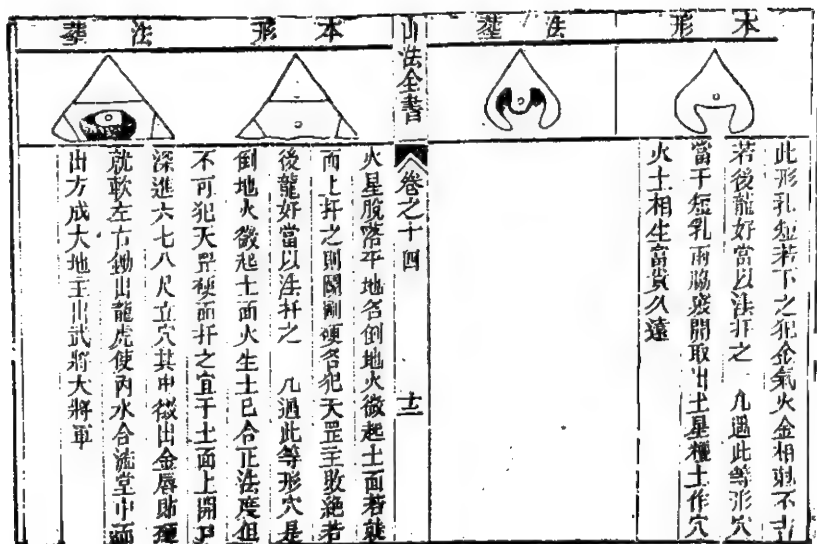 本形
葬法
此形乳短若下之犯金氣火金相剋不吉
若後龍好當以法扦之　凡遇此等形穴
當于短乳兩脇發開取出土星樁土作穴
火土相生富貴久遠
山法全書
卷之十四
十三
本形
法葬
火星脫落平地名倒地火微起土面若就
而上扦之則關剛硬名犯天罡主敗絕若
後龍好當以法扦之　凡遇此等形穴是
倒地火微起土面火生土已合正法度但
不可犯天罡硬面扦之宜于土面上開
深進六七八尺立穴其中微出金唇貼
就軟左右鋤出龍虎使內水合流堂中
出方成大地主出武將大將軍